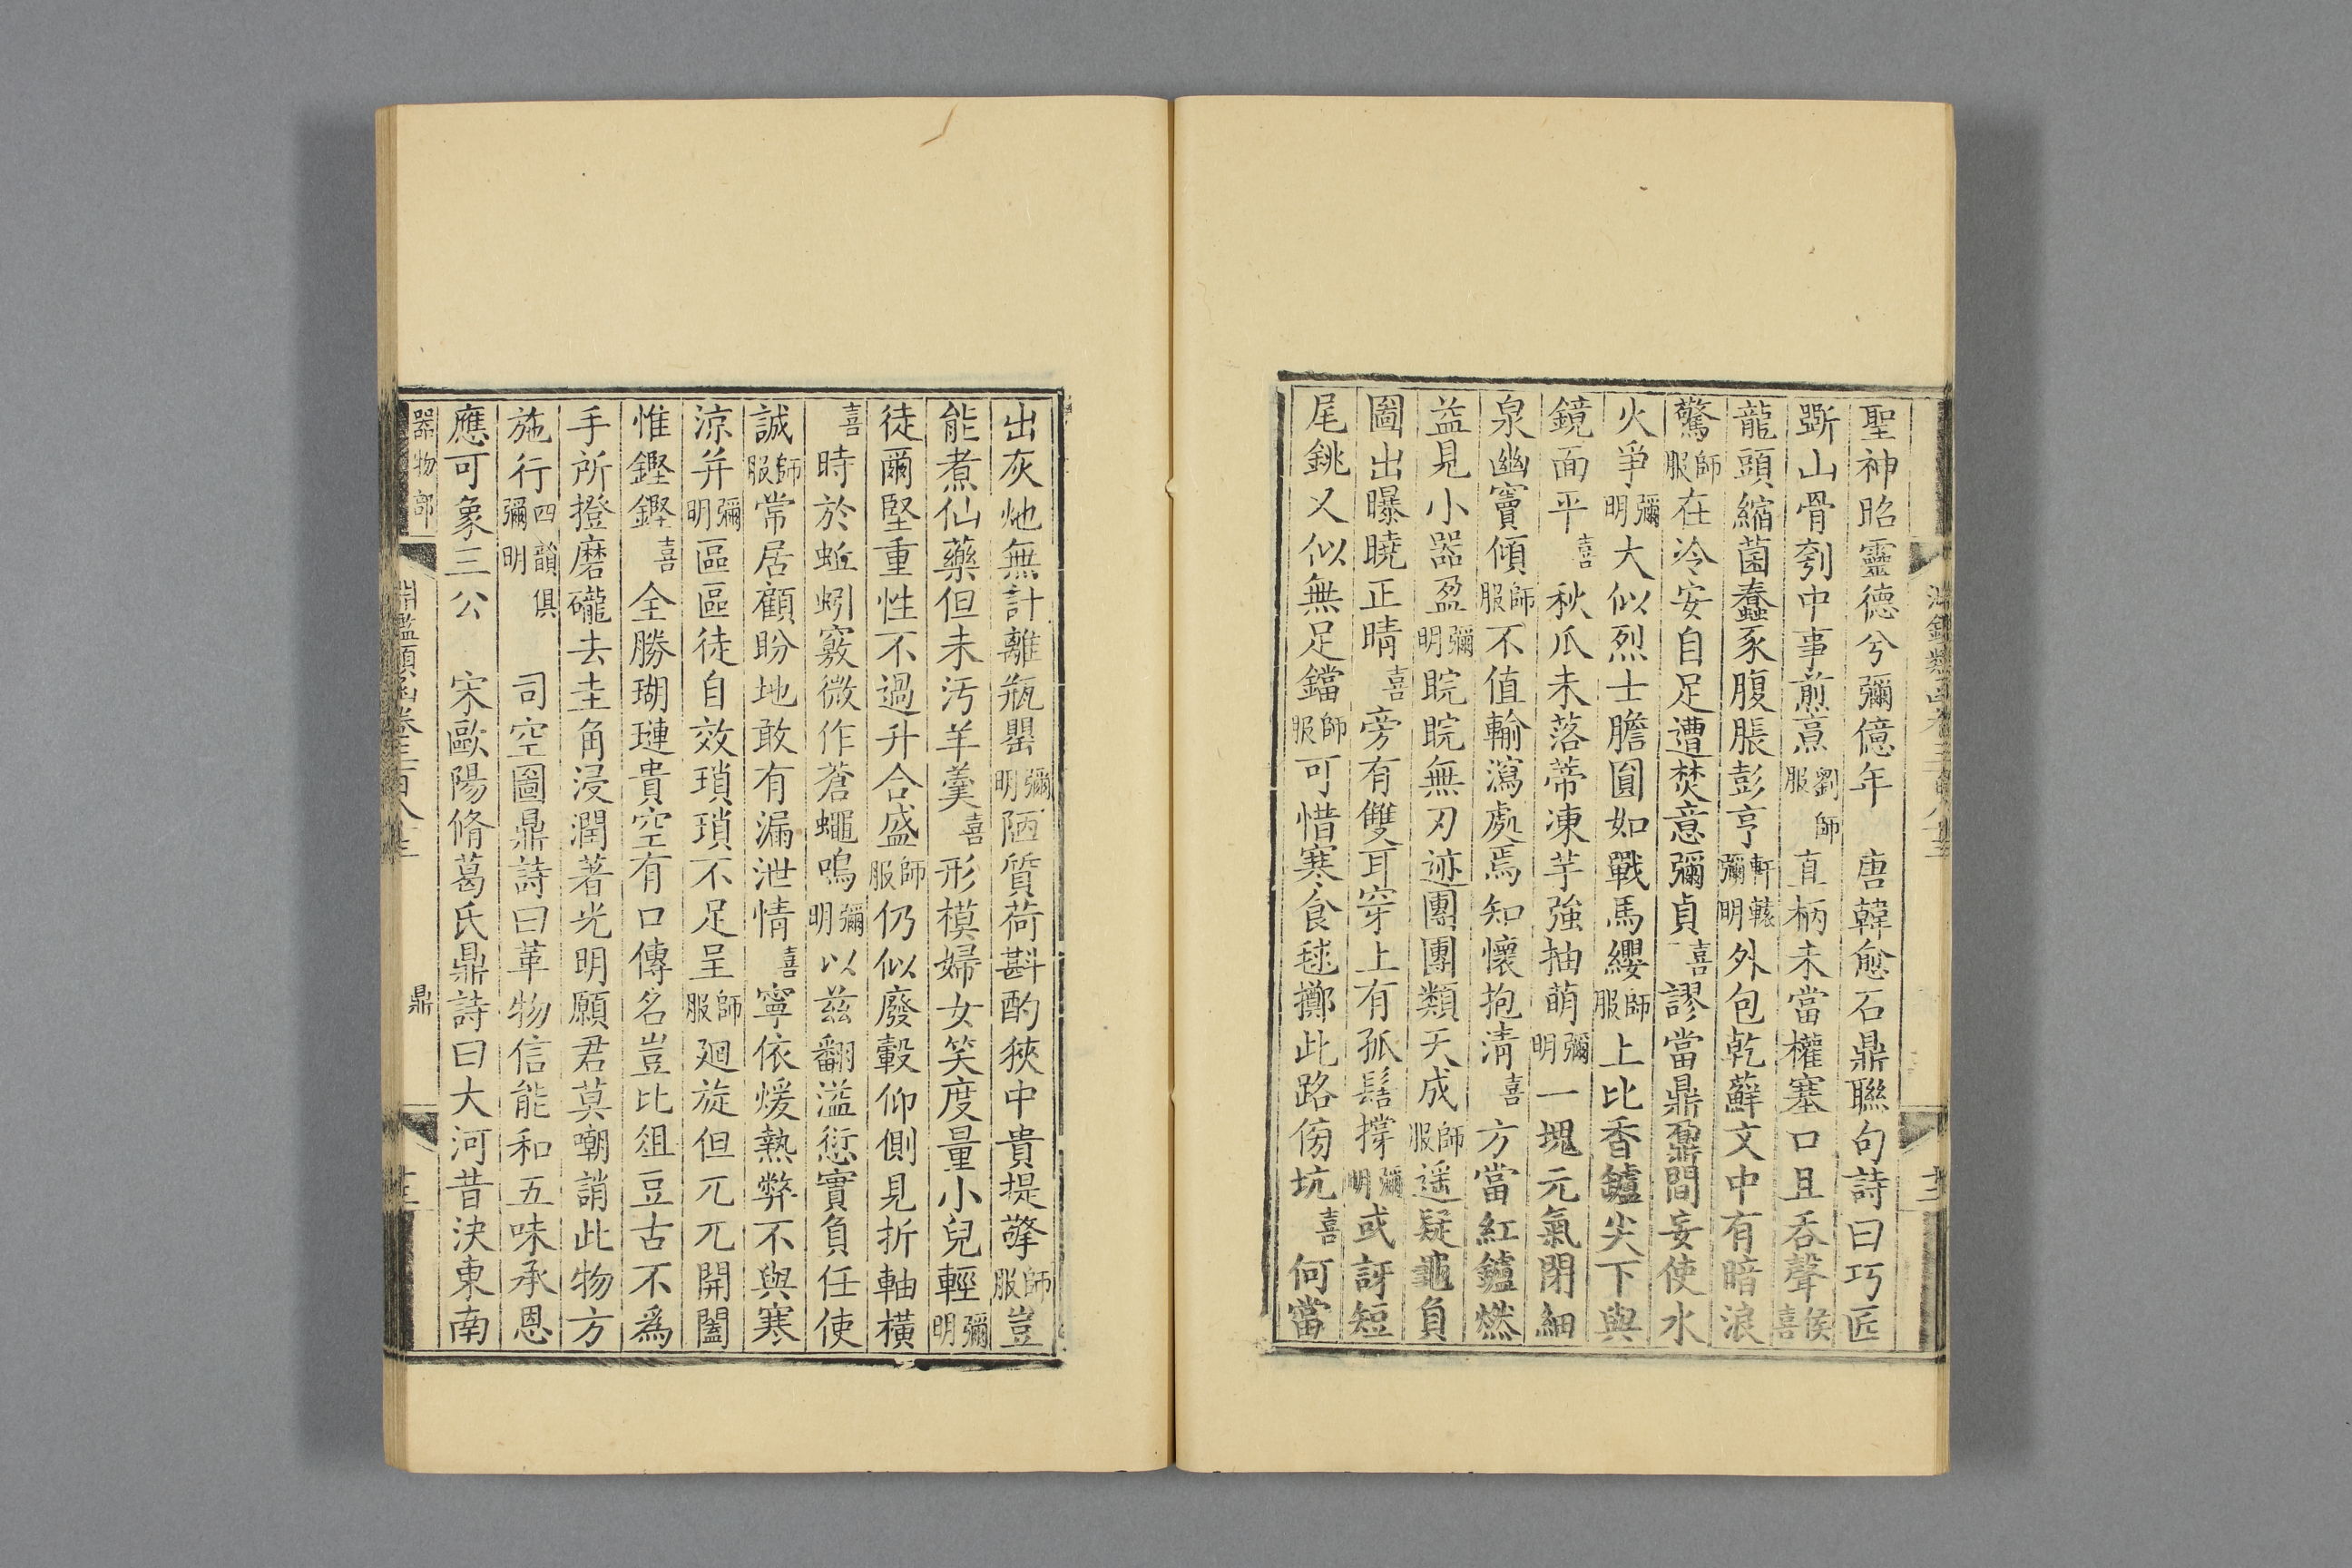 聖神昭靈德兮彌億年　唐韓愈石鼎聯句詩曰巧匠
斲山骨刳中事煎烹劉師服直柄未當權塞口且吞聲侯喜
龍頭縮菌蠢豕腹脹彭亨軒轅彌明外包乾蘚文中有暗浪
驚師服在冷安自足遭焚意彌貞喜謬當鼎鼐間妄使水
火爭彌明大似烈士膽圓如戰馬纓師服上比香鑪尖下與
鏡面平喜秋瓜未落蒂凍芋強抽萌彌明一塊元氣閉細
泉幽竇傾師服不值輸瀉處焉知懷抱清喜方當紅鑪燃
益見小器盈彌明睆睆無刃迹團團類天成師服遥疑龜負
圖出曝曉正晴喜旁有雙耳穿上有孤髻撑彌明或訝短
尾銚又似無足鐺師服可惜寒食毬擲此路傍坑喜何當
出灰灺無計離瓶罌彌明陋質荷斟酌狹中貴提擎師服豈
能煮仙藥但未汚羊羹喜形模婦女笑度量小兒輕彌明
徒爾堅重性不過升合盛師服仍似廢轂仰側見折軸橫
喜時於蚯蚓竅微作蒼蠅鳴彌明以兹翻溢愆實負任使
誠師服常居顧盼地敢有漏泄情喜寧依煖熱弊不與寒
涼并彌明區區徒自效瑣瑣不足呈師服廻旋但兀兀開闔
惟鏗鏗喜全勝瑚璉貴空有口傳名豈比俎豆古不爲
手所撜磨礲去圭角浸潤著光明願君莫嘲誚此物方
施行四韻俱彌明　司空圖鼎詩曰革物信能和五味承恩
應可象三公　宋歐陽脩葛氏鼎詩曰大河昔決東南
器物部
淵鑑類函卷三百八十三
鼎